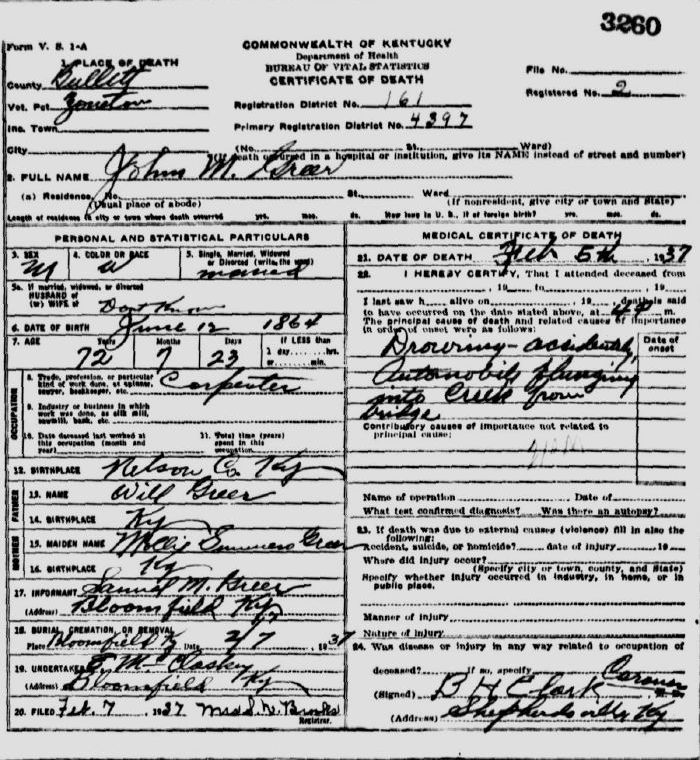 3260
Form V. S. 1-A
COMMONWEALTH OF KENTUCKY
Department of Health
BUREAU OF VITAL STATISTICS
CERTIFICATE OF DEATH
1. PLACE OF DEATH
County Bullitt
Vot. Pct. Zoneton
Inc. Town
City
File No.
Registered No. 2
Registration District No. 161
Primary Registration District No. 4397
(No. St. Ward)
(If death occurred in a hospital or institution, give its NAME instead of street and number)
2. FULL NAME John M. Greer
(a) Residence, No. St. Ward
(Usual place of abode) (If nonresident, give city or town and State)
Length of residence in city or town where death occurred yrs. mos. ds. How long in U. S., if of foreign birth? yrs. mos. ds.
PERSONAL AND STATISTICAL PARTICULARS
3. SEX M
4. COLOR OR RACE W
5. Single, Married, Widowed or Divorced (write the word) married
5a. If married, widowed, or divorced
HUSBAND of
(or) WIFE of Dont Know
6. DATE OF BIRTH June 12 1864
7. AGE Years Months Days If LESS than
72 7 23 1 day, hrs.
or min.
OCCUPATION
8. Trade, profession, or particular
kind of work done, as spinner,
sawyer, bookkeeper, etc. Carpenter
9. Industry or business in which
work was done, as silk mill,
sawmill, bank, etc.
10. Date deceased last worked at
this occupation (month and
year)
11. Total time (years)
spent in this
occupation
12. BIRTHPLACE Nelson Co. Ky
FATHER
13. NAME Will Greer
14. BIRTHPLACE Ky
MOTHER
15. MAIDEN NAME Mollie Summers Greer
16. BIRTHPLACE Ky
17. INFORMANT Samuel M. Greer
(Address) Bloomfield Ky
18. BURIAL, CREMATION, OR REMOVAL
Place Bloomfield Ky Date 2/7 1937
19. UNDERTAKER McClaskey
(Address) Bloomfield Ky
20. FILED Feb. 7 1937 Brooks
Registrar.
MEDICAL CERTIFICATE OF DEATH
21. DATE OF DEATH Feb 5th 1937
22. I HEREBY CERTIFY, That I attended deceased from
19 to 19
I last saw h alive on 19, death is said
to have occurred on the date stated above, at m.
The principal cause of death and related causes of importance
in order of onset were as follows:
Date of onset
Drowning - accidental,
Automobile plunging
into Creek from
bridge
Contributory causes of importance not related to
principal cause:
Name of operation Date of
What test confirmed diagnosis? Was there an autopsy?
23. If death was due to external causes (violence) fill in also the
following:
Accident, suicide, or homicide? date of injury 19
Where did injury occur?
(Specify city or town, county, and State)
Specify whether injury occurred in industry, in home, or in
public place.
Manner of injury
Nature of injury
24. Was disease or injury in any way related to occupation of
deceased? If so, specify
(Signed) B H Clark Coroner
(Address) Shepherdsville Ky